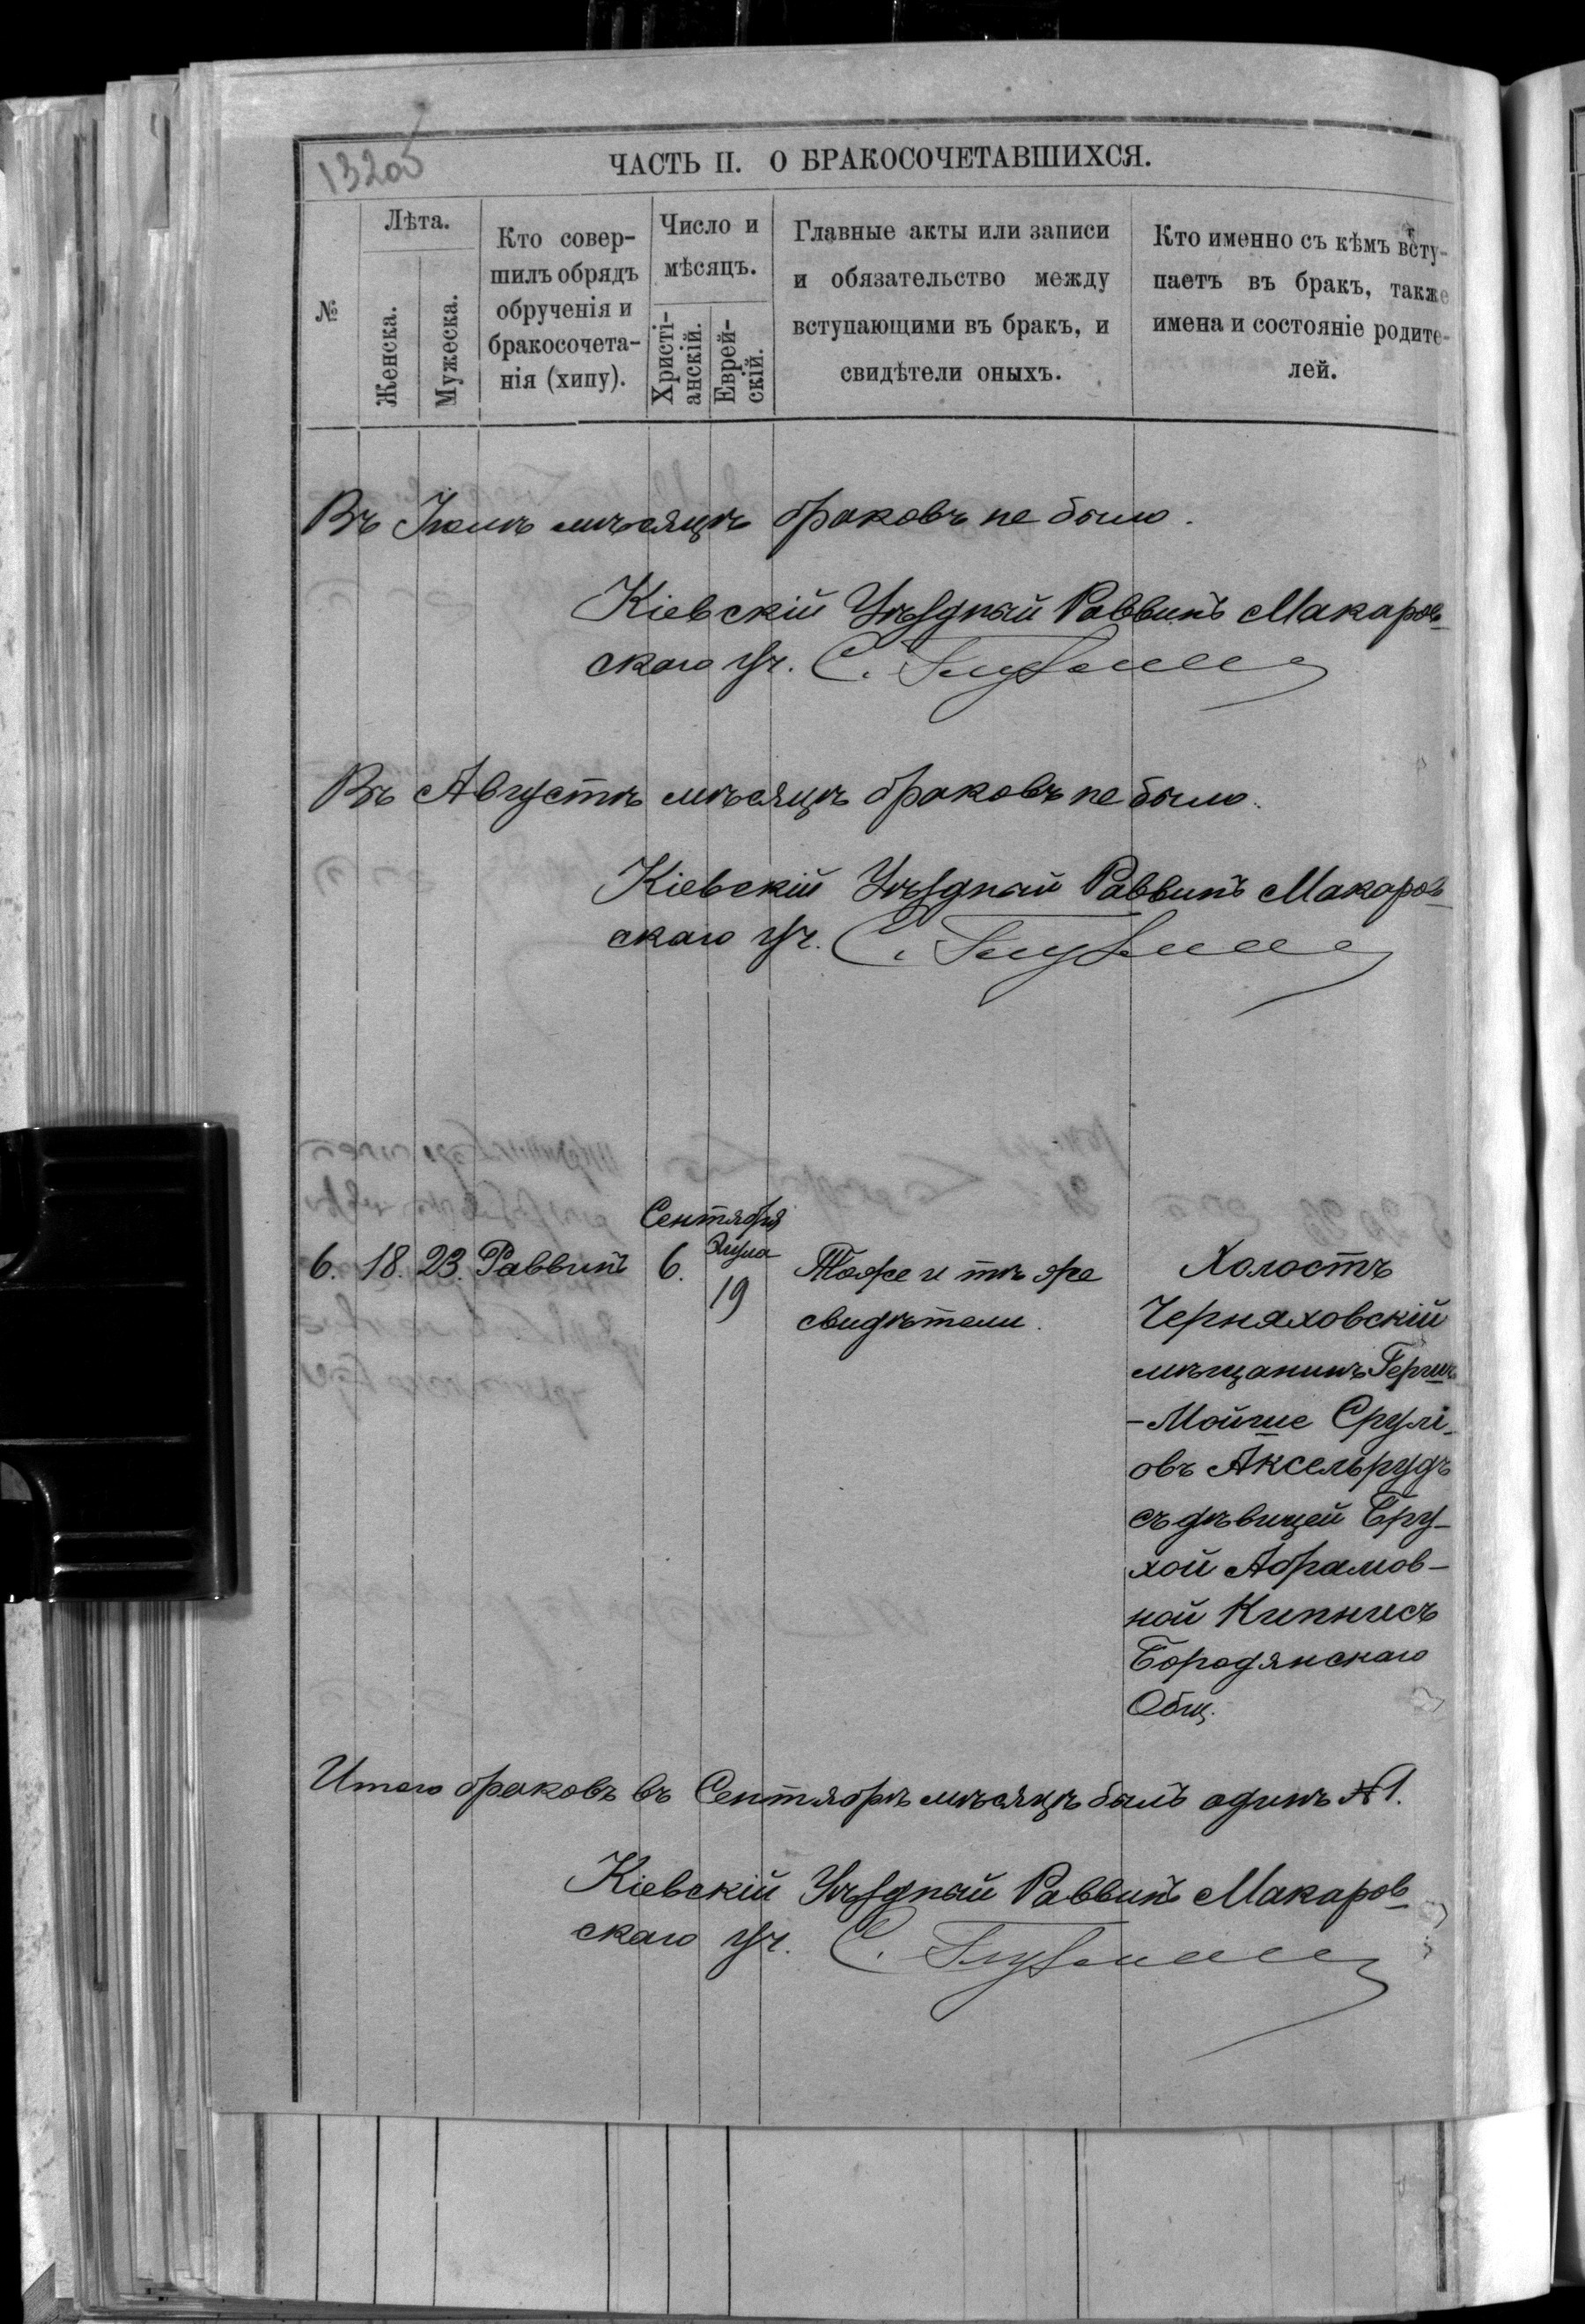 1320об
ЧАСТЬ II. О БРАКОСОЧЕТАВШИХСЯ.
№
Лѣта.
Женска.
Мужеска.
Кто совер-
шилъ обрядъ
обрученія и
бракосочета-
нія (хипу).
Число и
мѣсяцъ.
Христі-
анскій.
Еврей-
скій.
Главные акты или записи
и обязательство между
вступающими въ бракъ, и
свидѣтели оныхъ.
Кто именно съ кѣмъ всту-
паетъ въ бракъ, также
имена и состояніе родите-
лей.
Въ Іюлѣ мѣсяцѣ браковъ не было.
Кіевскій Уѣздный Раввинъ Макаров-
скаго Уч. С.
Въ Августѣ мѣсяцѣ браковъ не было.
Кіевскій Уѣздный Раввинъ Макаров-
скаго Уч. С.
Сентября
6. 18. 23. Раввинъ 6. Элула 19
Тоже и тѣ же
свидѣтели.
Холостъ
Черняховскій
мѣщанинъ Гершъ
-Мойше Срулі-
овъ Аксельрудъ
съ дѣвицей Бру-
хой Абрамов-
ной Кипнисъ
Бородянскаго
Общ.
Итого браковъ въ Сентябрѣ мѣсяцѣ былъ одинъ №1.
Кіевскій Уѣздный Раввинъ Макаров-
скаго Уч. С.